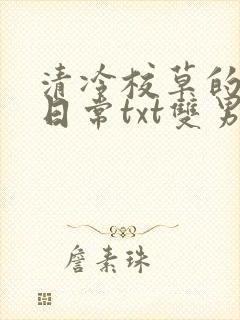 清冷校草的
日常txt雙男
詹素珠